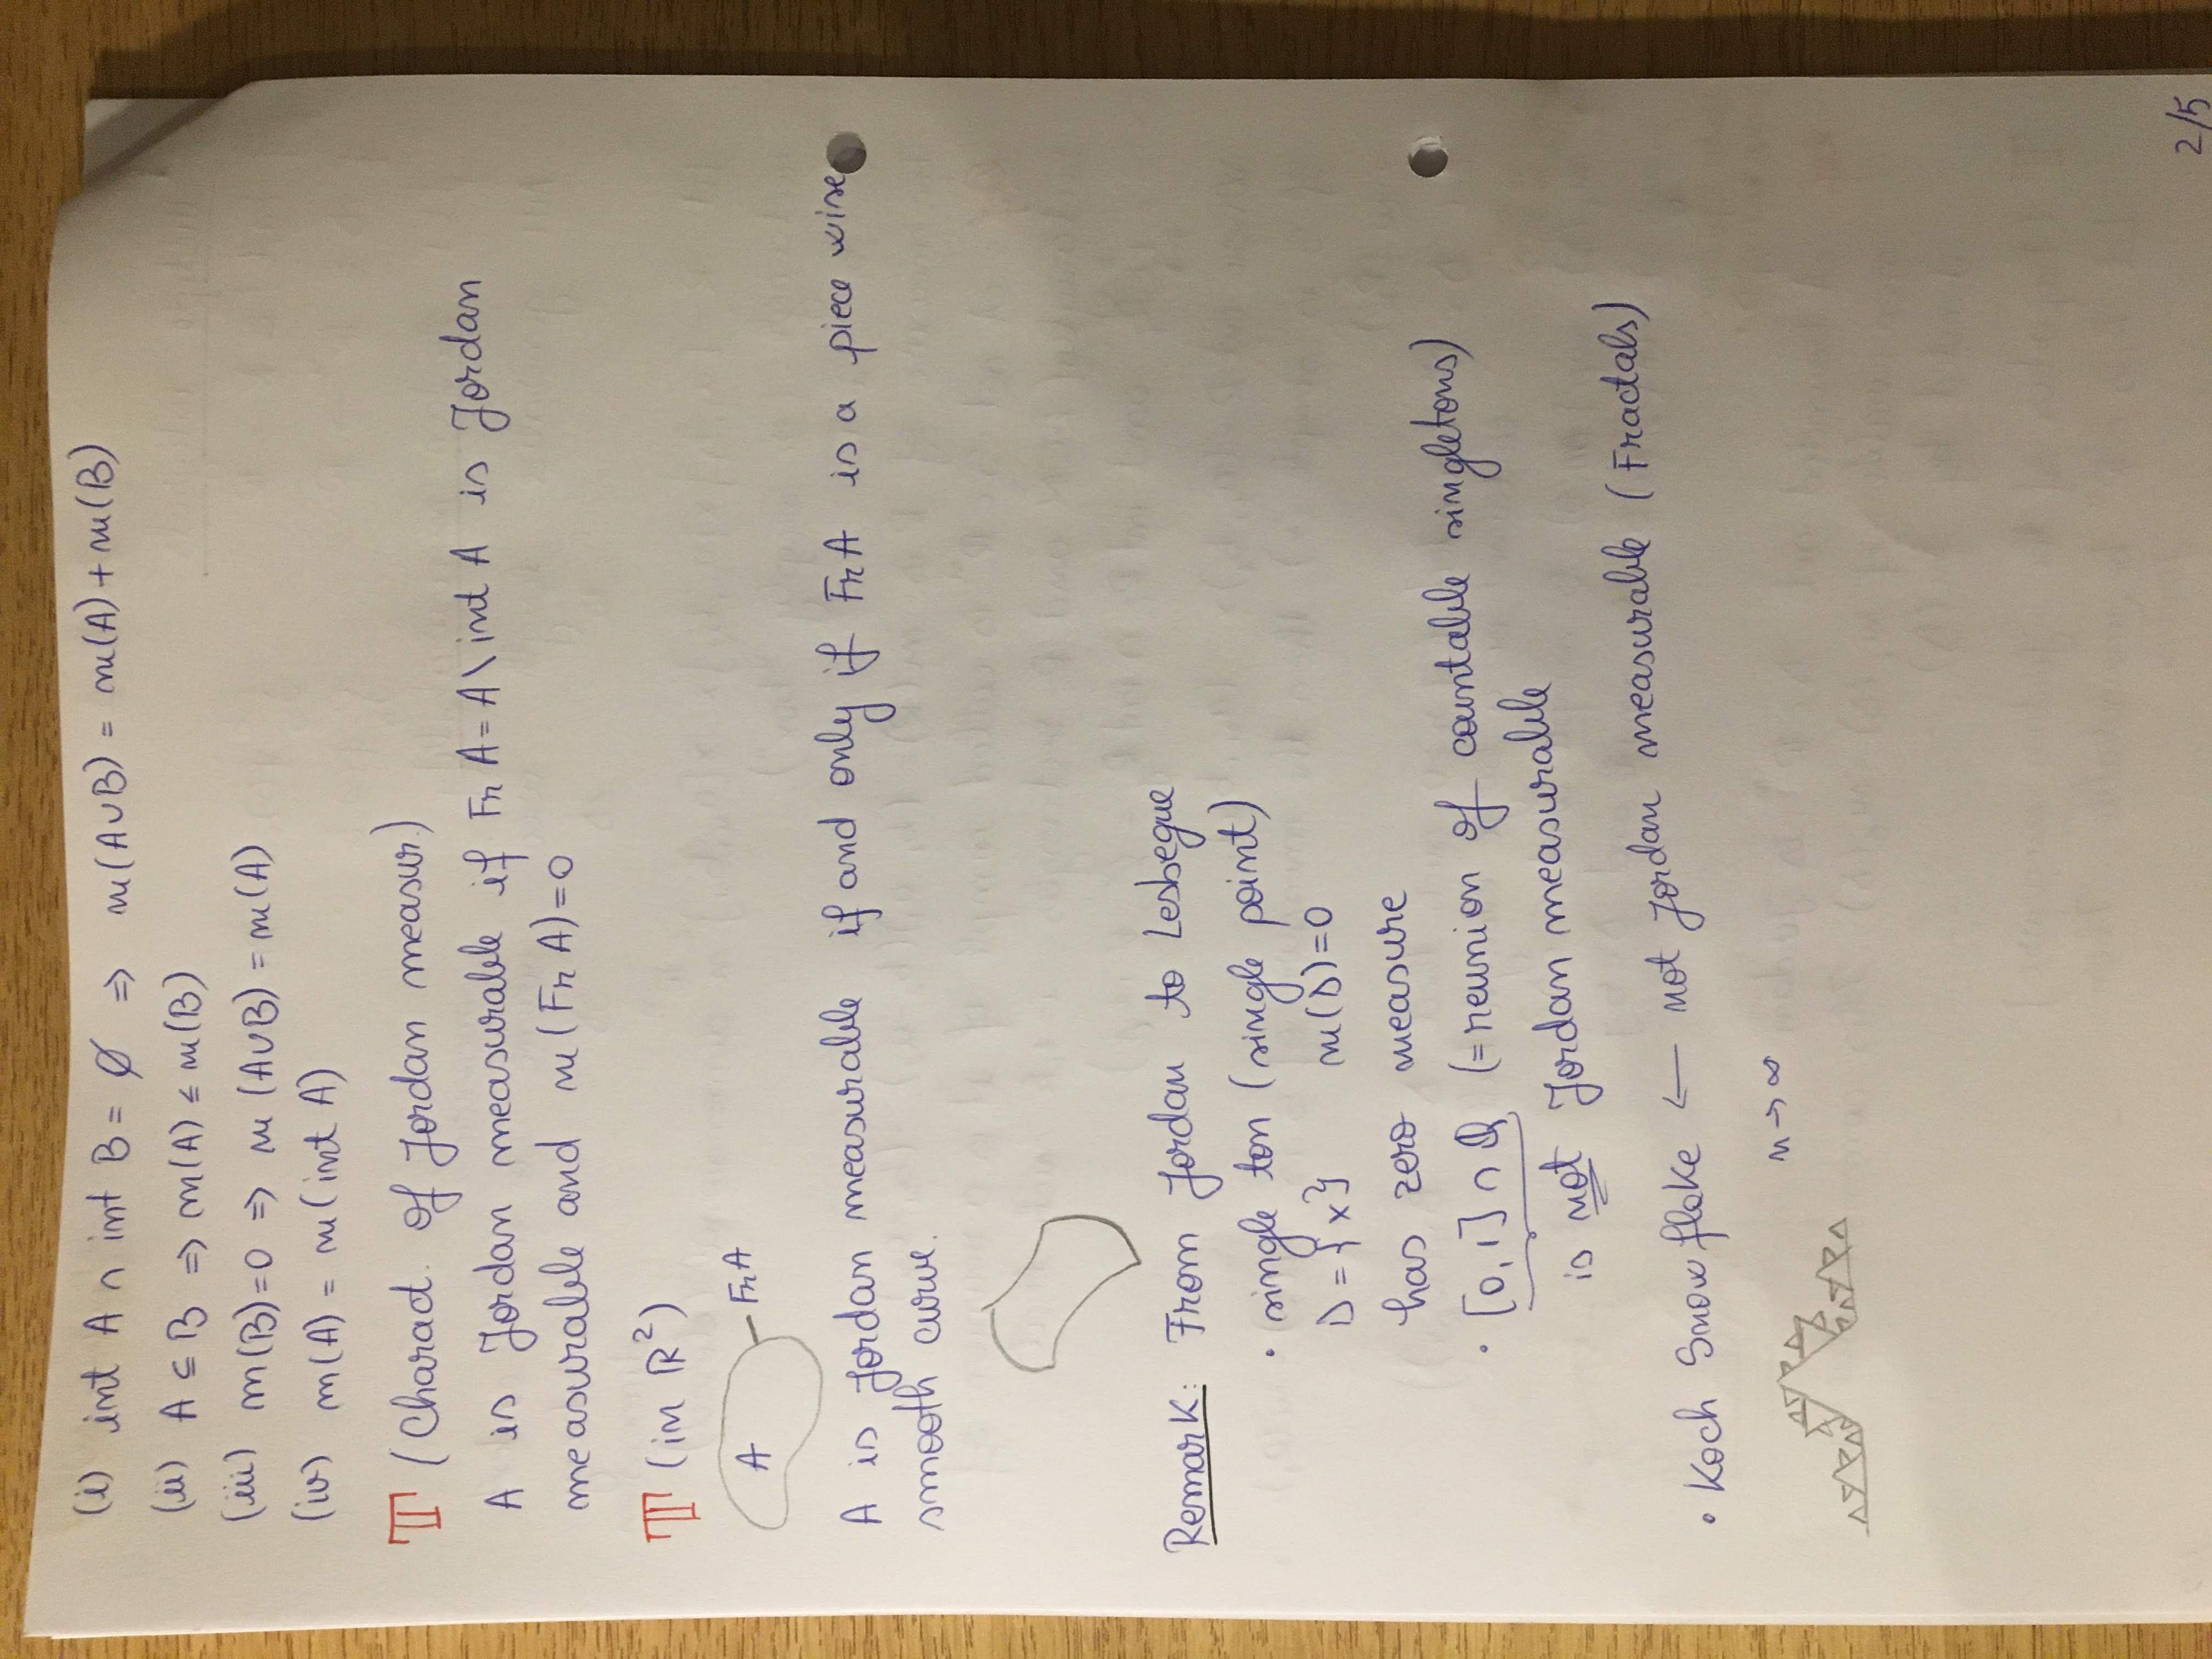 (i) int A ∩ int B = ∅ ⇒ m(A∪B) = m(A)+m(B)
(ii) A ⊆ B ⇒ m(A) ≤ m(B)
(iii) m(B)=0 ⇒ m(A∪B) = m(A)
(iv) m(A) = m(int A)
T (Charact. of Jordan measur.)
A is Jordan measurable if Fr A = A \ int A is Jordan
measurable and m(Fr A)=0
T (in ℝ²)
A
Fr A
A is Jordan measurable if and only if Fr A is a piece wise
smooth curve.
Remark: From Jordan to Lesbegue
• single ton (single point)
D = {x} m(D)=0
has zero measure
• [0,1] ∩ ℚ (= reunion of countable singletons)
is not Jordan measurable
• Koch Snowflake ← not Jordan measurable (Fractals)
n → ∞
2/5